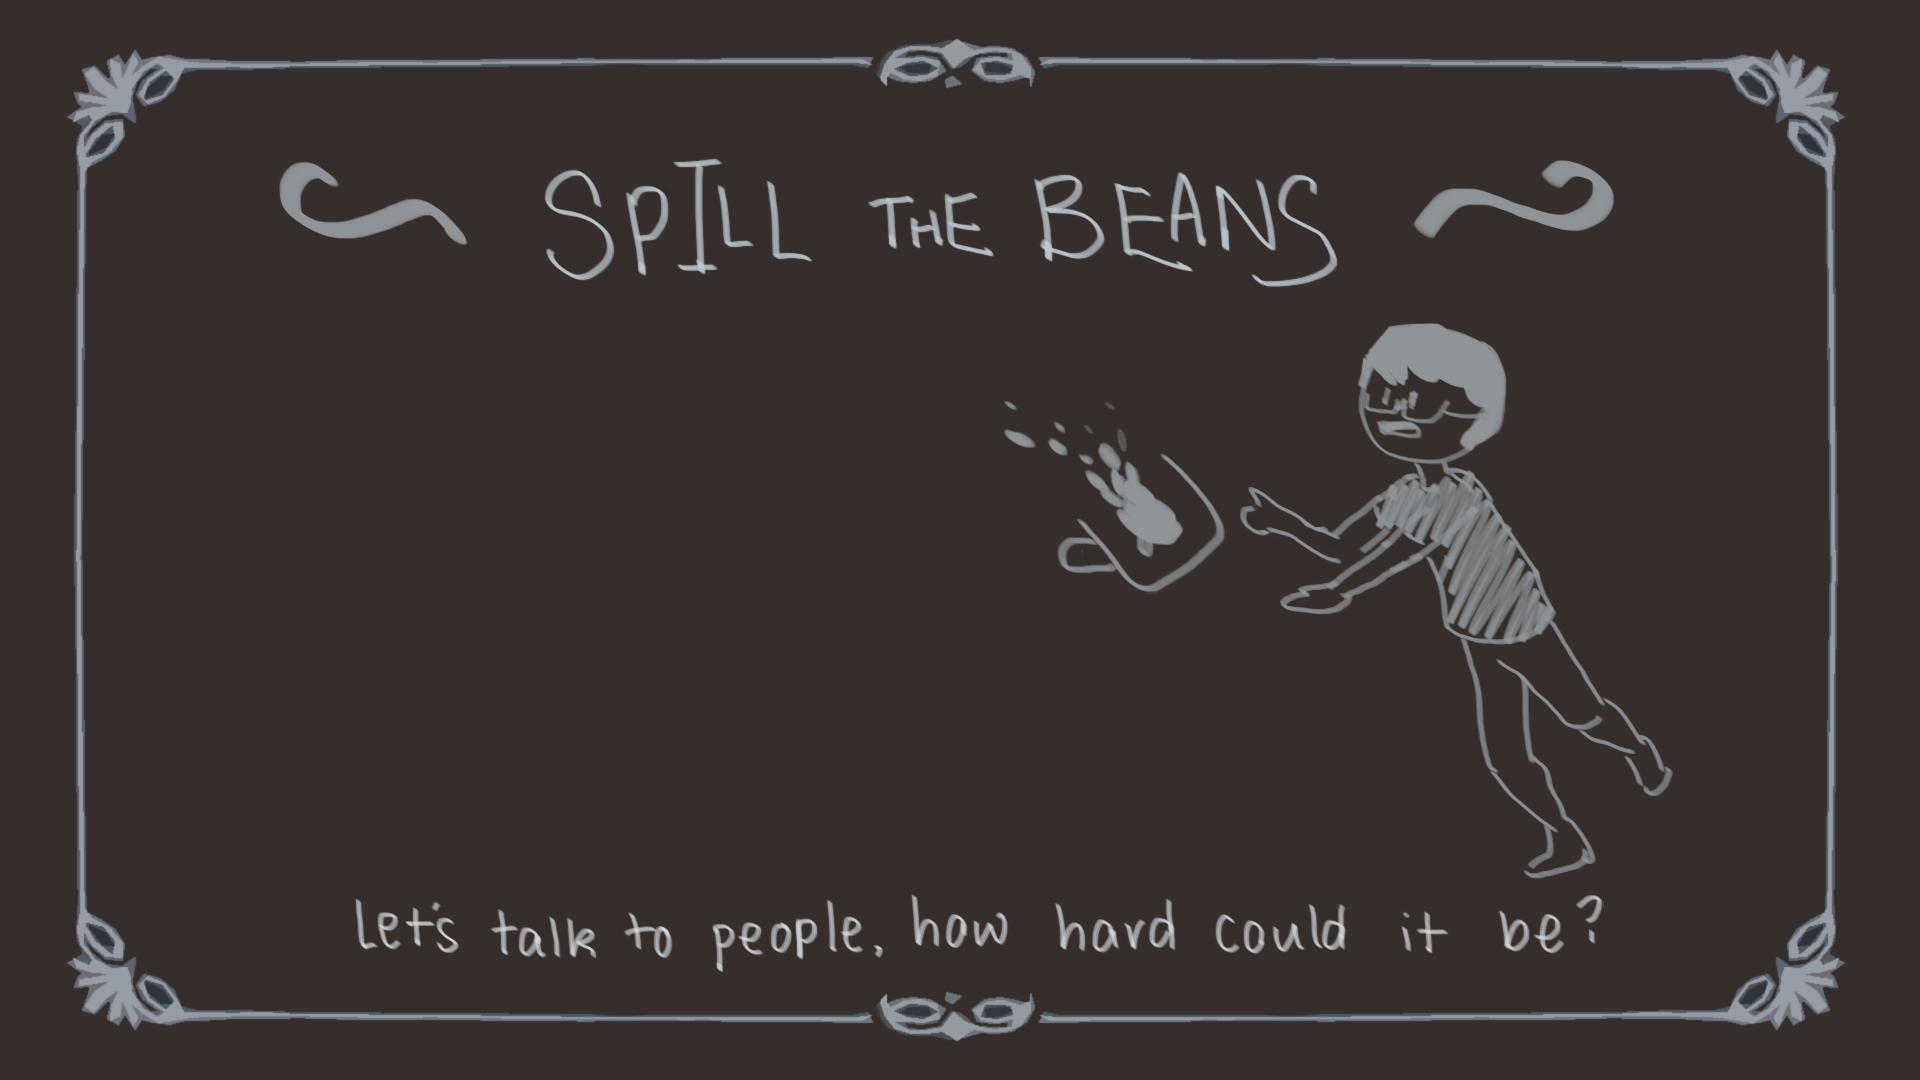 SPILL THE BEANS
Let's talk to people, how hard could it be?